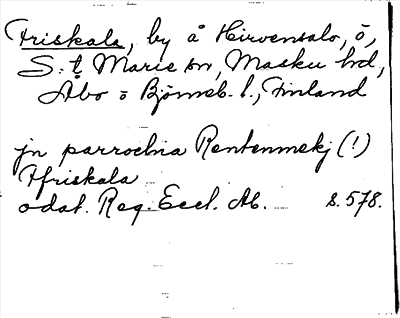 Friskala, by å Hirvensalo, ö,
S:t Marie sn, Masku hd,
Åbo o Björneb. l., Finland
jn parrochia Rentenmekj (!)
Ffriskala
odat. Reg. Eccl. Ab. s. 578.